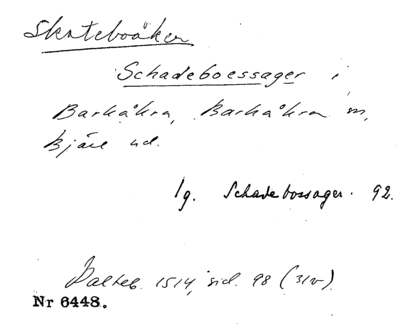 Skateboåker
Schadeboessager i
Barkåkra, Barkåkra sn,
Bjäre hd.
1g. Schadebossager. 92.
Palteb. 1514, sid. 98 (31v)
Nr 6448.